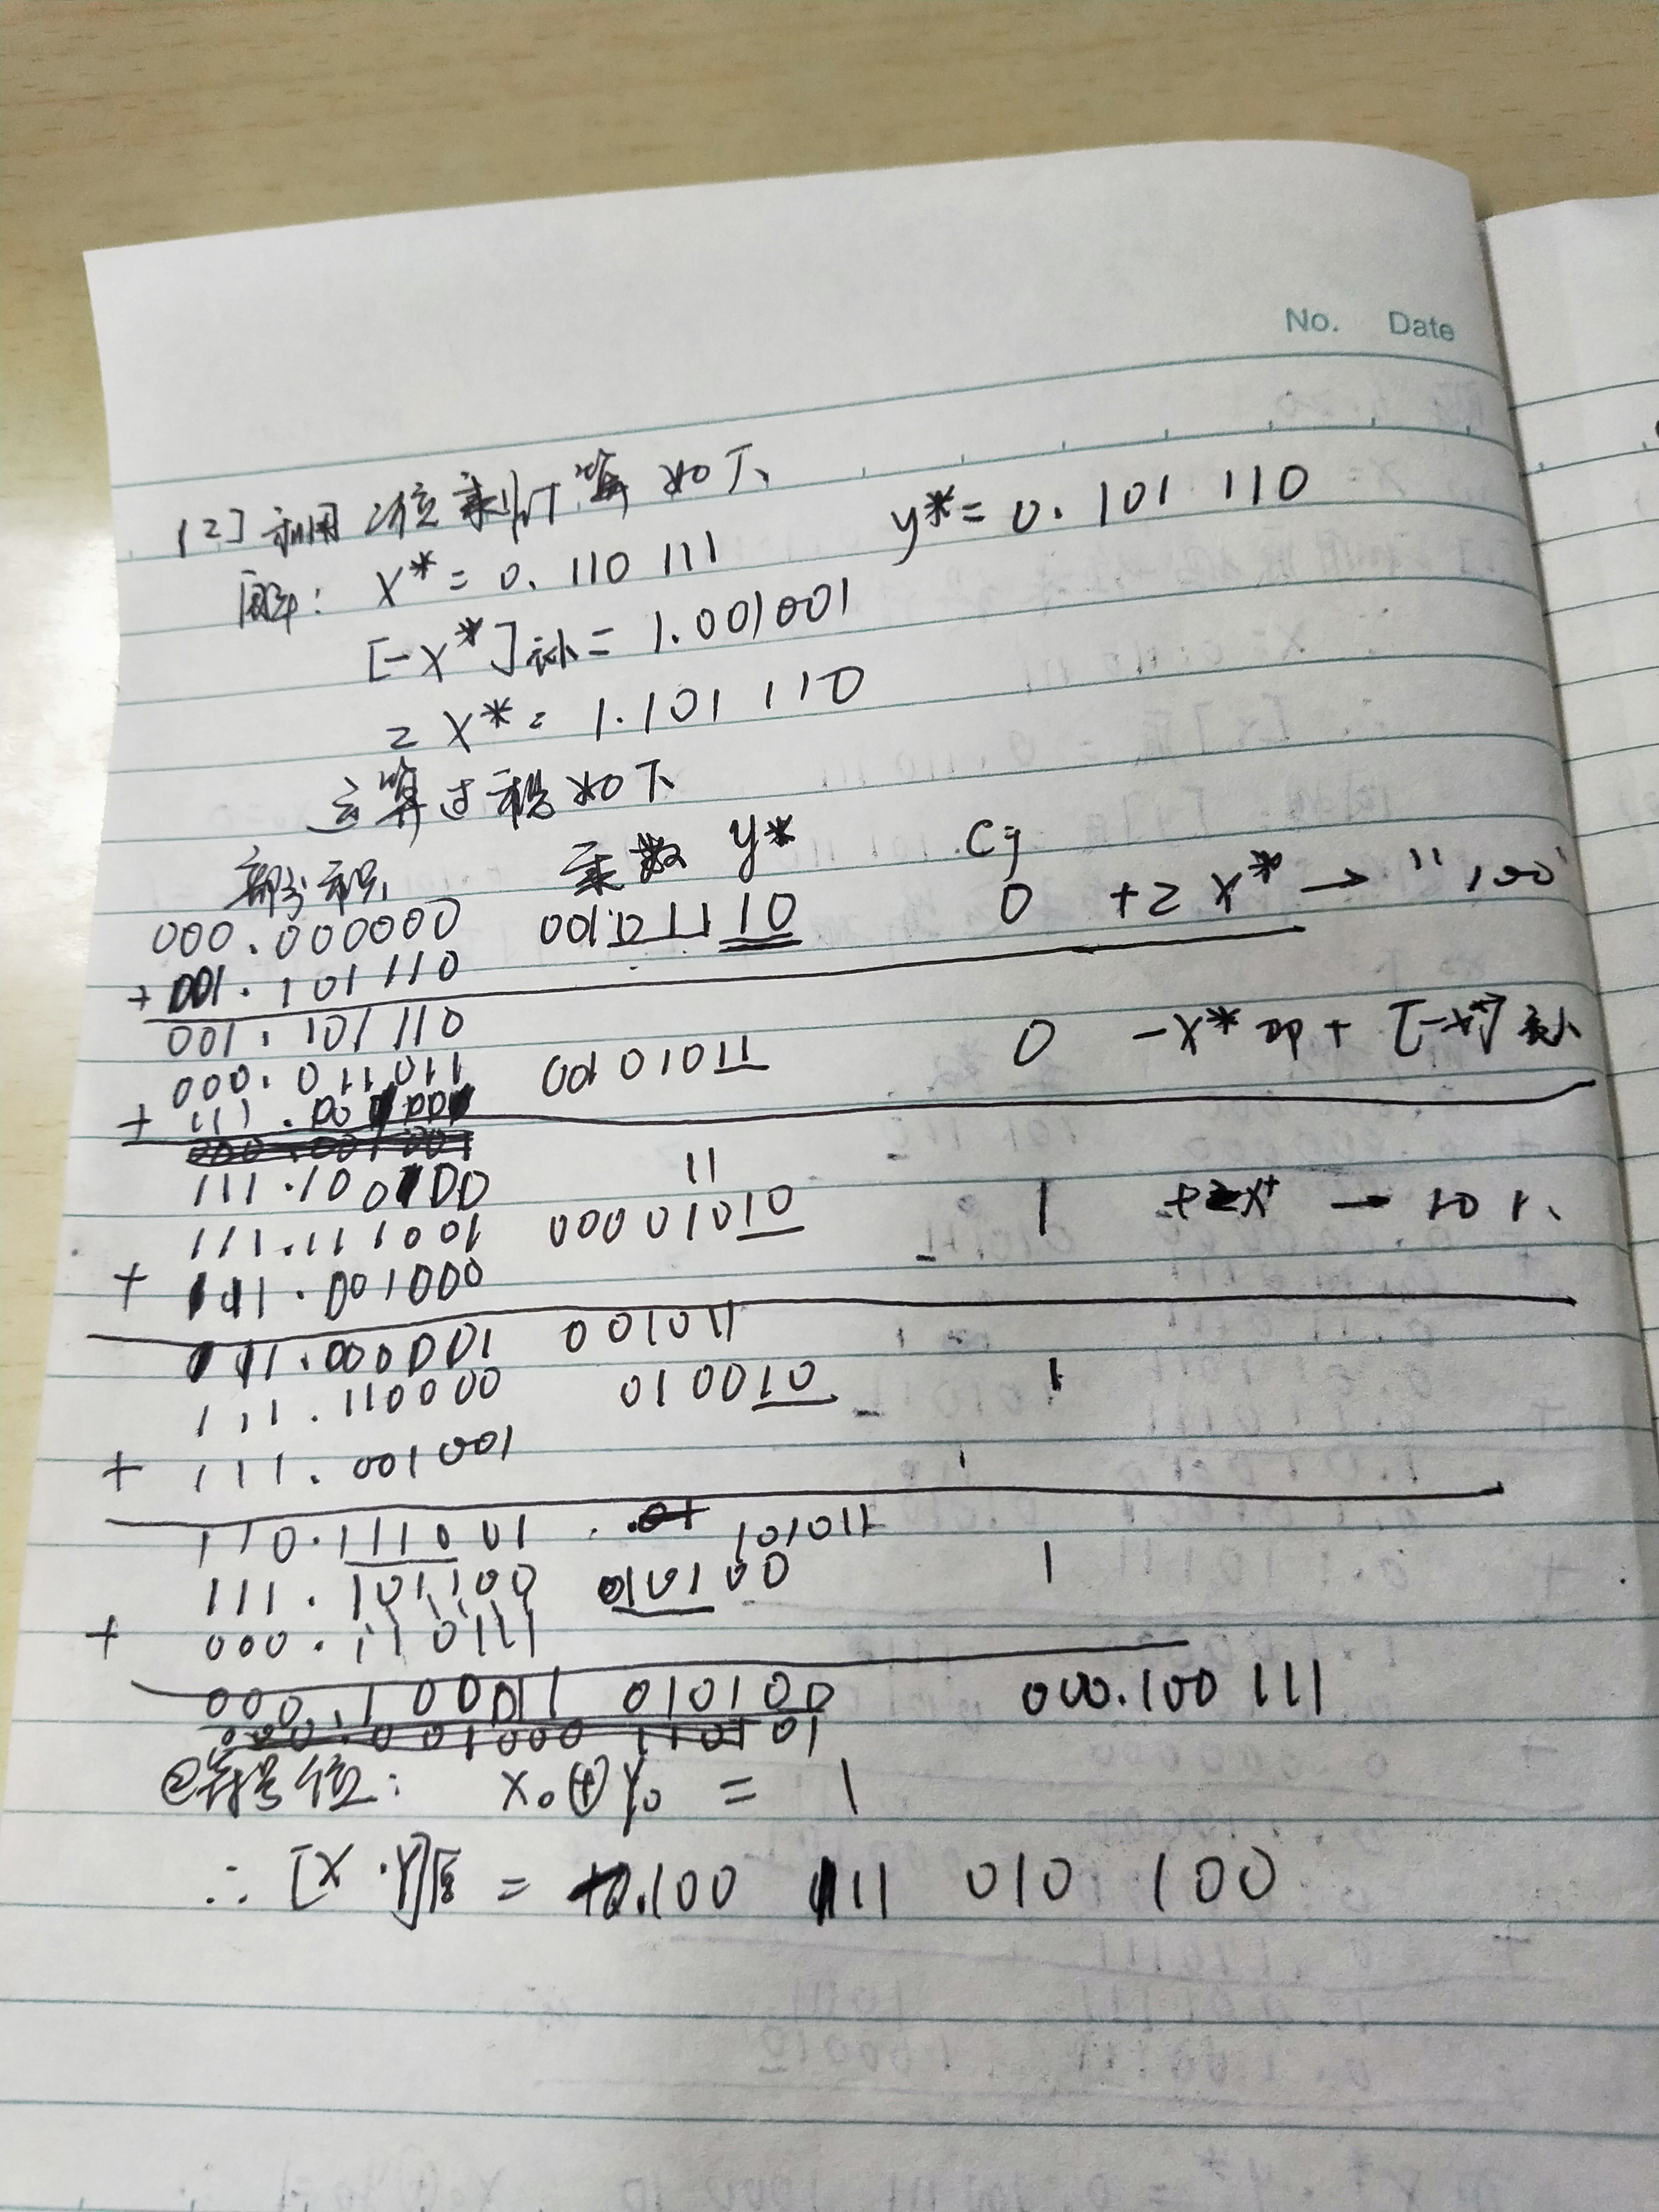 No. Date
(2) 利用2位乘计算如下
解: X* = 0.110 111 y* = 0.101 110
[-X*]补 = 1.001001
2X* = 1.101 110
运算过程如下
部分积 乘数 y* Cj
000.000000 00101110 0 +2X* → "100"
+ 001.101110
001.101110
000.011011 00101011 0 -X* 即 + [-X*]补
+ 111.001001
111.100100 11
111.111001 00001010 1 +2X* → 101
+ 111.001000
111.000001 001011
111.110000 010010 1
+ 111.001001
110.111001 101011
111.101100 010100 1
+ 000.110111
000.100011 010100 000.100 111
②符号位: X₀⊕Y₀ = 1
∴ [X·Y]原 = 0.100 111 010 100